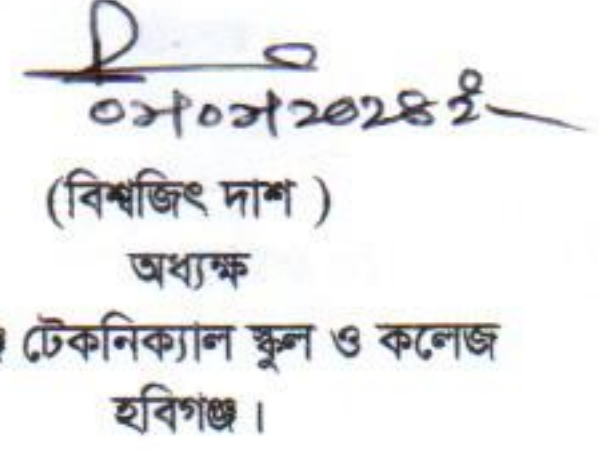 ০৯/০৯/২০২৪ ইং
(বিশ্বজিৎ দাশ )
অধ্যক্ষ
টেকনিক্যাল স্কুল ও কলেজ
হবিগঞ্জ।